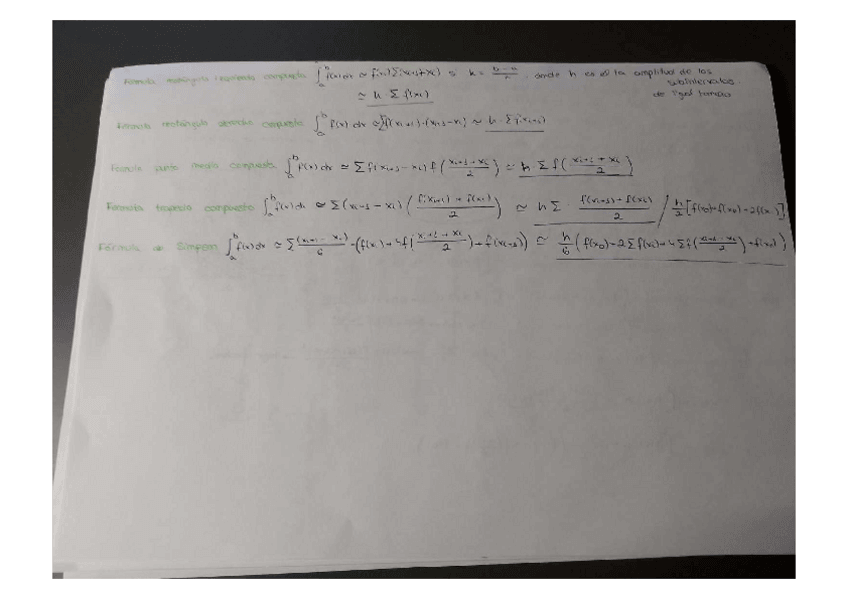 Fórmula rectángulo izquierda compuesta ∫_a^b f(x) dx ≃ f(xi) Σ(xi+1 xi) si h = , donde h es la amplitud de los subintervalos de igual tamaño
≃ h · Σ f(xi)
Fórmula rectángulo derecha compuesta ∫_a^b f(x) dx ≃ Σ f(xi+1)·(xi+1 - xi) ≃ h · Σ f(xi+1)
Fórmula punto medio compuesta ∫_a^b f(x) dx ≃ Σ (xi+1 - xi) f((xi+1 + xi)/2) ≃ h · Σ f((xi+1 + xi)/2)
Fórmula trapecio compuesto ∫_a^b f(x) dx ≃ Σ (xi+1 - xi) ((f(xi+1) + f(xi))/2) ≃ h Σ · (f(xi+1) + f(xi))/2 / h/2 [
Fórmula de Simpson ∫_a^b f(x) dx ≃ Σ (xi+1 - xi)/6 · (f(xi) + 4f((xi+1 + xi)/2) + f(xi+1)) ≃ h/6 (f(x0) + 2Σ f(xi) + 4Σ f(